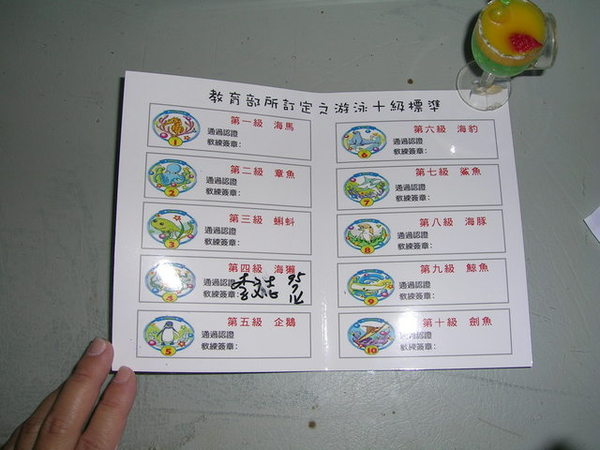 教育部所訂定之游泳十級標準
第一級 海馬
通過認證
教練簽章:
1
第二級 章魚
通過認證
教練簽章:
2
第三級 蝌蚪
通過認證
教練簽章:
3
第四級 海獺
95
7
4
第五級 企鵝
通過認證
教練簽章:
5
第六級 海豹
通過認證
教練簽章:
6
第七級 鯊魚
通過認證
教練簽章:
7
第八級 海豚
通過認證
教練簽章:
8
第九級 鯨魚
通過認證
教練簽章:
9
第十級 劍魚
通過認證
教練簽章:
10